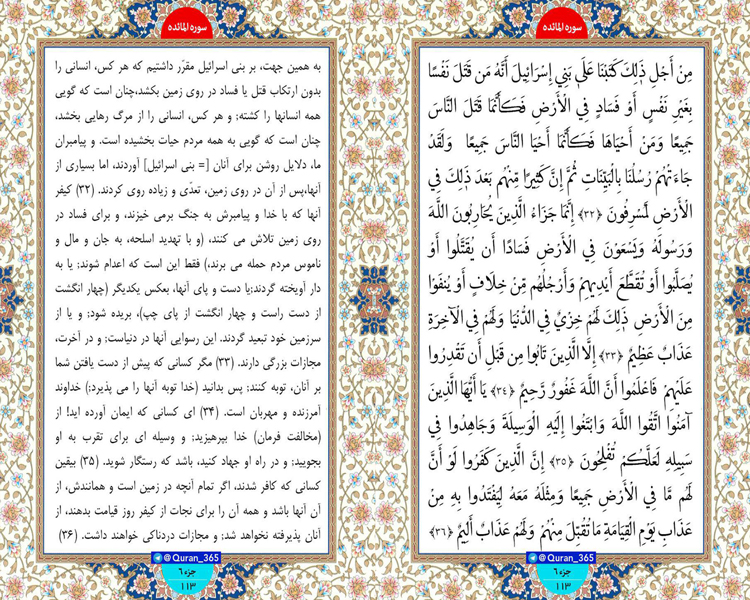 سوره المائده
مِنْ أَجْلِ ذَلِكَ كَتَبْنَا عَلَى بَنِي إِسْرَائِيلَ أَنَّهُ مَن قَتَلَ نَفْسًا
بِغَيْرِ نَفْسٍ أَوْ فَسَادٍ فِي الْأَرْضِ فَكَأَنَّمَا قَتَلَ النَّاسَ
جَمِيعًا وَمَنْ أَحْيَاهَا فَكَأَنَّمَا أَحْيَا النَّاسَ جَمِيعًا وَلَقَدْ
جَاءَتْهُمْ رُسُلُنَا بِالْبَيِّنَاتِ ثُمَّ إِنَّ كَثِيرًا مِّنْهُم بَعْدَ ذَلِكَ فِي
الْأَرْضِ لَمُسْرِفُونَ ﴿۳۲﴾ إِنَّمَا جَزَاءُ الَّذِينَ يُحَارِبُونَ اللَّهَ
وَرَسُولَهُ وَيَسْعَوْنَ فِي الْأَرْضِ فَسَادًا أَن يُقَتَّلُوا أَوْ
يُصَلَّبُوا أَوْ تُقَطَّعَ أَيْدِيهِمْ وَأَرْجُلُهُم مِّنْ خِلَافٍ أَوْ يُنفَوْا
مِنَ الْأَرْضِ ذَلِكَ لَهُمْ خِزْيٌ فِي الدُّنْيَا وَلَهُمْ فِي الْآخِرَةِ
عَذَابٌ عَظِيمٌ ﴿۳۳﴾ إِلَّا الَّذِينَ تَابُوا مِن قَبْلِ أَن تَقْدِرُوا
عَلَيْهِمْ فَاعْلَمُوا أَنَّ اللَّهَ غَفُورٌ رَّحِيمٌ ﴿۳۴﴾ يَا أَيُّهَا الَّذِينَ
آمَنُوا اتَّقُوا اللَّهَ وَابْتَغُوا إِلَيْهِ الْوَسِيلَةَ وَجَاهِدُوا فِي
سَبِيلِهِ لَعَلَّكُمْ تُفْلِحُونَ ﴿۳۵﴾ إِنَّ الَّذِينَ كَفَرُوا لَوْ أَنَّ
لَهُم مَّا فِي الْأَرْضِ جَمِيعًا وَمِثْلَهُ مَعَهُ لِيَفْتَدُوا بِهِ مِنْ
عَذَابِ يَوْمِ الْقِيَامَةِ مَا تُقُبِّلَ مِنْهُمْ وَلَهُمْ عَذَابٌ أَلِيمٌ ﴿۳۶﴾
@Quran_365
جزء ۶
۱۱۳
سوره المائده
به همین جهت، بر بنی اسرائیل مقرّر داشتیم که هر کس، انسانی را
بدون ارتکاب قتل یا فساد در روی زمین بکشد،چنان است که گویی
همه انسانها را کشته; و هر کس، انسانی را از مرگ رهایی بخشد،
چنان است که گویی به همه مردم حیات بخشیده است. و پیامبران
ما، دلایل روشن برای آنان [= بنی اسرائیل] آوردند، اما بسیاری از
آنها،پس از آن در روی زمین، تعدّی و زیاده روی کردند. (۳۲) کیفر
آنها که با خدا و پیامبرش به جنگ برمی خیزند، و برای فساد در
روی زمین تلاش می کنند، (و با تهدید اسلحه، به جان و مال و
ناموس مردم حمله می برند،) فقط این است که اعدام شوند; یا به
دار آویخته گردند;یا دست و پای آنها، بعکس یکدیگر (چهار انگشت
از دست راست و چهار انگشت از پای چپ)، بریده شود; و یا از
سرزمین خود تبعید گردند. این رسوایی آنها در دنیاست; و در آخرت،
مجازات بزرگی دارند. (۳۳) مگر کسانی که پیش از دست یافتن شما
بر آنان، توبه کنند; پس بدانید (خدا توبه آنها را می پذیرد;) خداوند
آمرزنده و مهربان است. (۳۴) ای کسانی که ایمان آورده اید! از
(مخالفت فرمان) خدا بپرهیزید; و وسیله ای برای تقرب به او
بجویید; و در راه او جهاد کنید، باشد که رستگار شوید. (۳۵) بیقین
کسانی که کافر شدند، اگر تمام آنچه در زمین است و همانندش، از
آن آنها باشد و همه آن را برای نجات از کیفر روز قیامت بدهند، از
آنان پذیرفته نخواهد شد; و مجازات دردناکی خواهند داشت. (۳۶)
@Quran_365
جزء ۶
۱۱۳